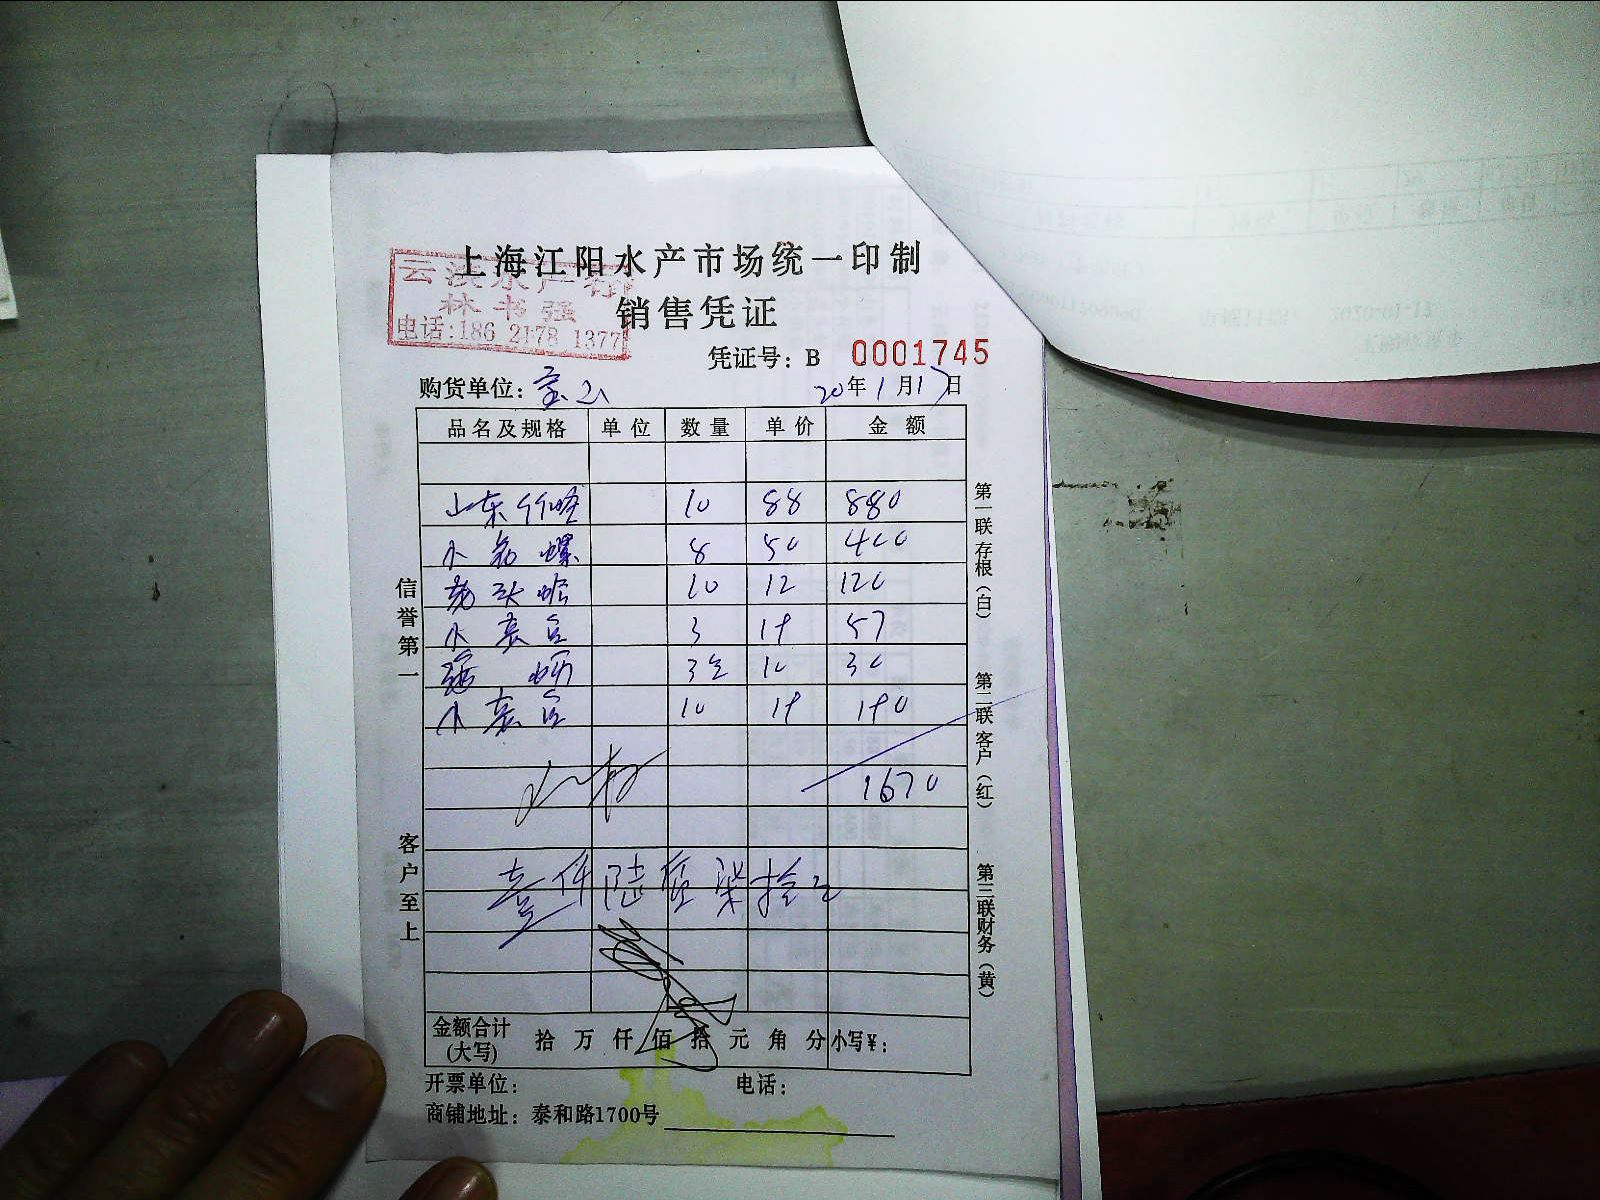 上海江阳水产市场统一印制
销售凭证
林书强
电话:186 2178 1377
凭证号: B 0001745
购货单位: 宝山 20年1月17日
品名及规格 单位 数量 单价 金额
山东竹蛏 10 88 880
小 螺 8 50 400
头 10 12 120
小 3 19 57
3斤 10 30
小 10 19 190
1670
壹仟陆佰柒拾元
金额合计(大写) 拾 万 仟 佰 拾 元 角 分 小写¥:
开票单位: 电话:
商铺地址: 泰和路1700号
信誉第一
客户至上
第一联存根(白)
第二联客户(红)
第三联财务(黄)